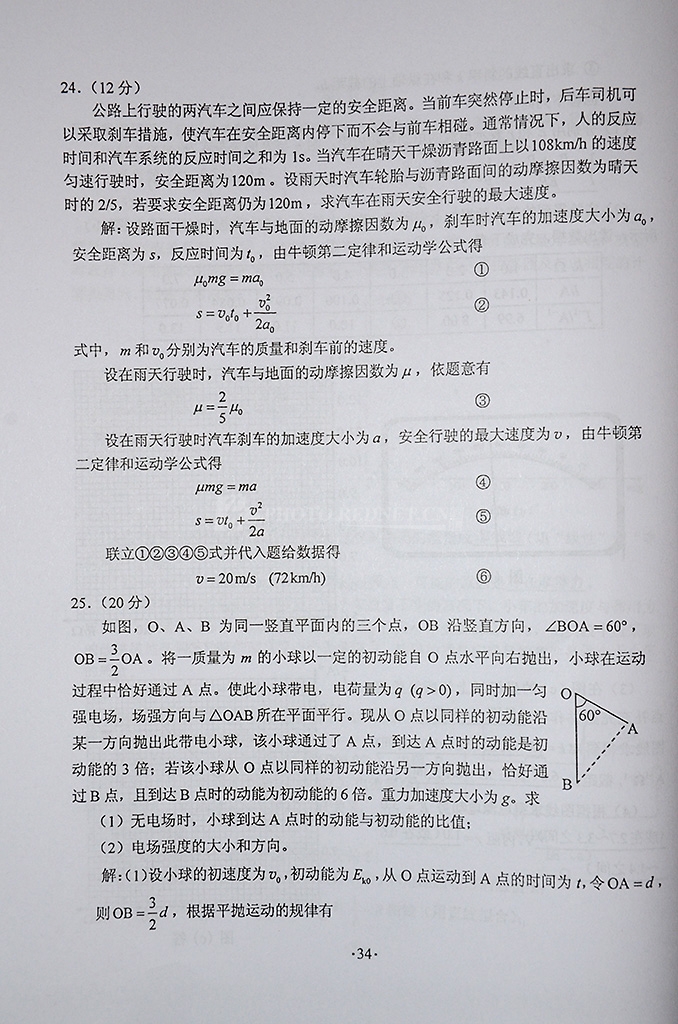 24.（12分）
公路上行驶的两汽车之间应保持一定的安全距离。当前车突然停止时，后车司机可
以采取刹车措施，使汽车在安全距离内停下而不会与前车相碰。通常情况下，人的反应
时间和汽车系统的反应时间之和为 1s。当汽车在晴天干燥沥青路面上以108km/h 的速度
匀速行驶时，安全距离为120m。设雨天时汽车轮胎与沥青路面间的动摩擦因数为晴天
时的 2/5，若要求安全距离仍为120m，求汽车在雨天安全行驶的最大速度。
解：设路面干燥时，汽车与地面的动摩擦因数为 μ₀，刹车时汽车的加速度大小为 a₀，
安全距离为 s，反应时间为 t₀，由牛顿第二定律和运动学公式得
μ₀mg = ma₀ ①
s = v₀t₀ + v₀²/2a₀ ②
式中，m 和 v₀ 分别为汽车的质量和刹车前的速度。
设在雨天行驶时，汽车与地面的动摩擦因数为 μ，依题意有
μ = 2/5 μ₀ ③
设在雨天行驶时汽车刹车的加速度大小为 a，安全行驶的最大速度为 v，由牛顿第
二定律和运动学公式得
μmg = ma ④
s = vt₀ + v²/2a ⑤
联立①②③④⑤式并代入题给数据得
v = 20m/s (72km/h) ⑥
25.（20分）
如图，O、A、B 为同一竖直平面内的三个点，OB 沿竖直方向，∠BOA = 60°，
OB = 3/2 OA。将一质量为 m 的小球以一定的初动能自 O 点水平向右抛出，小球在运动
过程中恰好通过 A 点。使此小球带电，电荷量为 q (q > 0)，同时加一匀
强电场，场强方向与△OAB 所在平面平行。现从 O 点以同样的初动能沿
某一方向抛出此带电小球，该小球通过了 A 点，到达 A 点时的动能是初
动能的 3 倍；若该小球从 O 点以同样的初动能沿另一方向抛出，恰好通
过 B 点，且到达 B 点时的动能为初动能的 6 倍。重力加速度大小为 g。求
O
60°
A
B
（1）无电场时，小球到达 A 点时的动能与初动能的比值；
（2）电场强度的大小和方向。
解：(1)设小球的初速度为 v₀，初动能为 Eₖ₀，从 O 点运动到 A 点的时间为 t，令 OA = d，
则 OB = 3/2 d，根据平抛运动的规律有
·34·